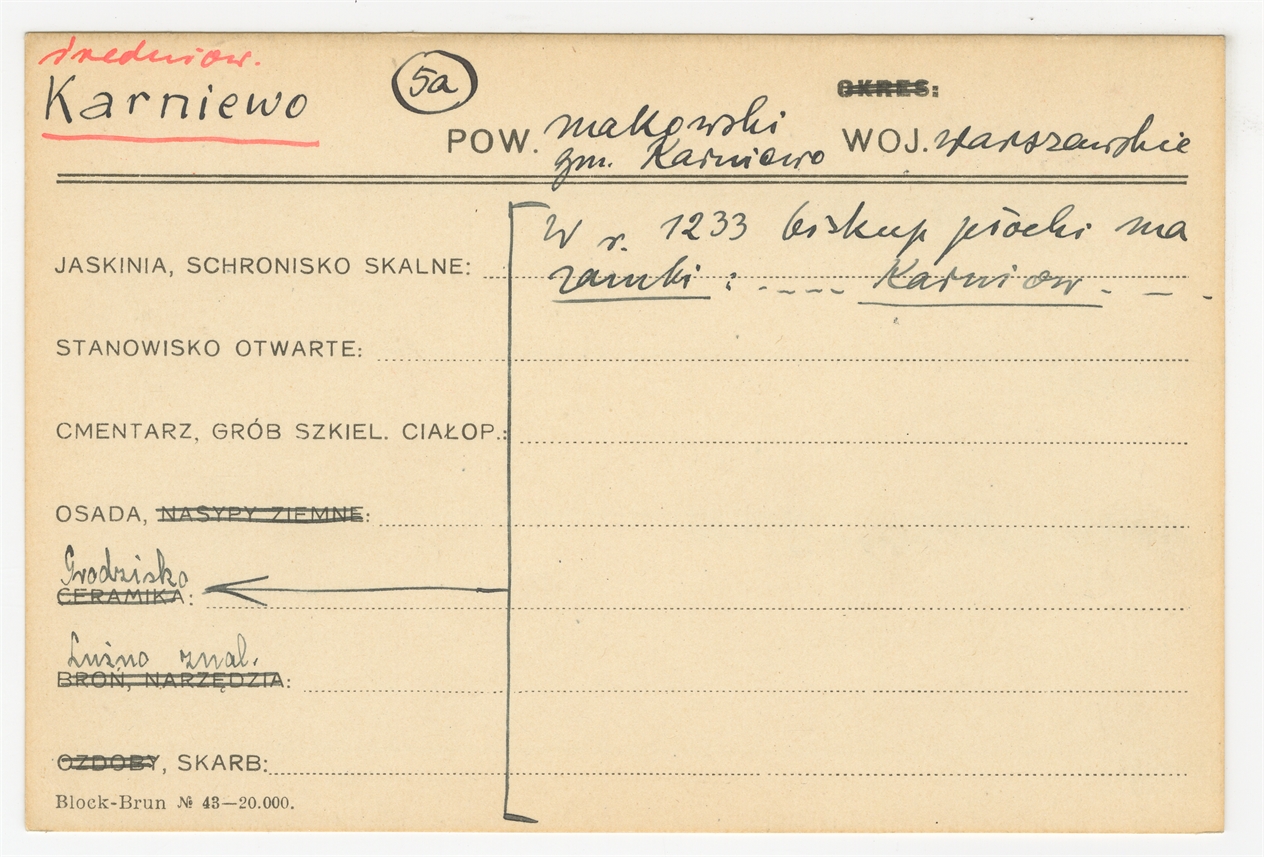 średniow.
Karniewo
5a
OKRES:
POW. makowski WOJ. warszawskie
gm. Karniewo
W r. 1233 biskup płocki ma
JASKINIA, SCHRONISKO SKALNE: zamki : . _ _ _ _ Karniow . _ _ .
STANOWISKO OTWARTE:
CMENTARZ, GRÓB SZKIEL. CIAŁOP.:
OSADA, NASYPY ZIEMNE:
Grodzisko
CERAMIKA:
Luźno znal.
BROŃ, NARZĘDZIA:
OZDOBY, SKARB:
Block-Brun № 43—20.000.